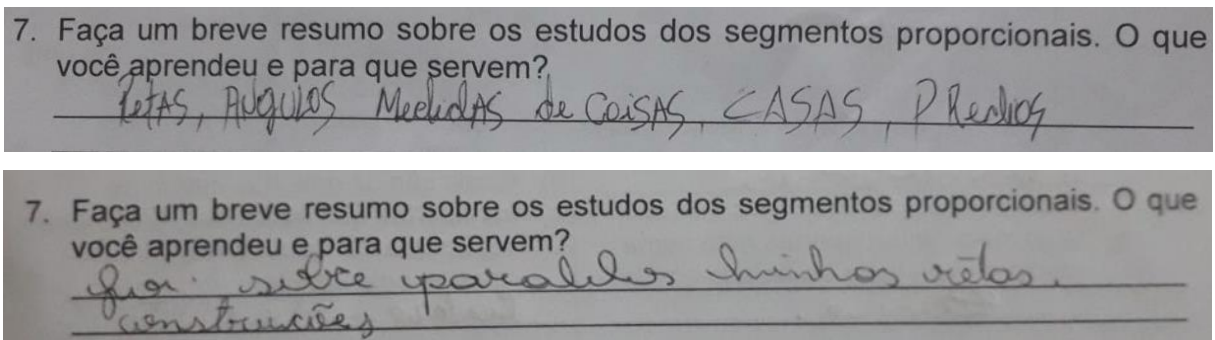 7. Faça um breve resumo sobre os estudos dos segmentos proporcionais. O que
você aprendeu e para que servem?
RetAS, AUGULOS MedidAS de CoiSAS, CASAS, PRedios
7. Faça um breve resumo sobre os estudos dos segmentos proporcionais. O que
você aprendeu e para que servem?
sobre paralelos linhas retas.
construções